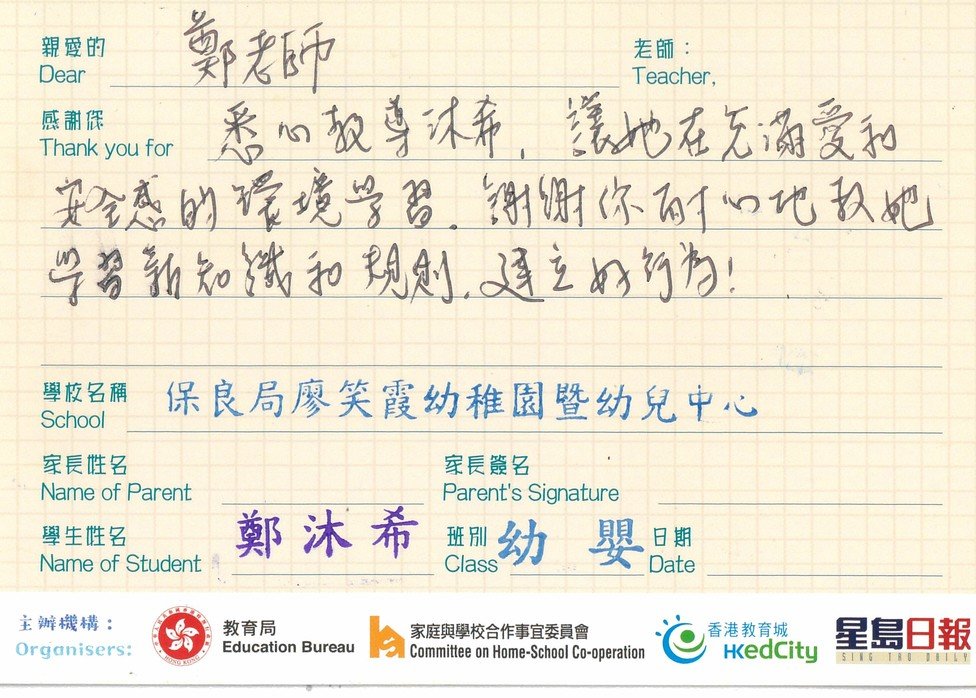 親愛的 鄭老師 老師：
Dear Teacher,
感謝您 悉心教導沐希，讓她在充滿愛和
Thank you for
安全感的環境學習。謝謝你耐心地教她
學習新知識和規則，建立好行為！
學校名稱 保良局廖笑霞幼稚園暨幼兒中心
School
家長姓名 家長簽名
Name of Parent Parent's Signature
學生姓名 鄭沐希 班別 幼嬰 日期
Name of Student Class Date
主辦機構： 教育局 家庭與學校合作事宜委員會 香港教育城 星島日報
Organisers: Education Bureau Committee on Home-School Co-operation HKedCity SING TAO DAILY